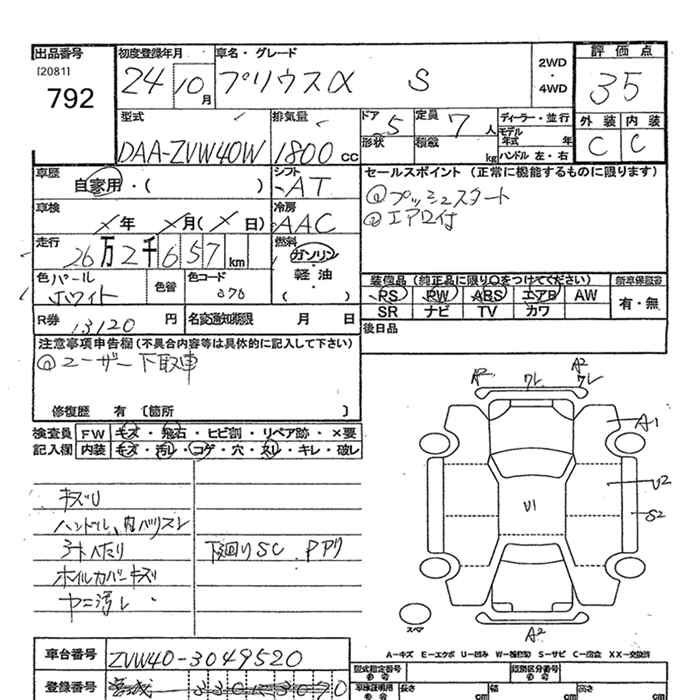 出品番号 初度登録年月 車名・グレード 評価点
[2081] 792 24 10月 プリウスα S 2WD・4WD 35
型式 排気量 ドア 5 定員 7人 ディーラー・並行 外装 内装
DAA-ZVW40W 1800cc 形状 積載 kg モデル年式 年 ハンドル 左・右 C C
車歴 自家用・( ) シフト AT セールスポイント(正常に機能するものに限ります)
①プッシュスタート
車検 ×年 ×月(×日) 冷房 AAC ②エアロ付
走行 26万2千657km 燃料 ガソリン・軽油・( )
色 パールホワイト 色替 色コード 070 装備品(純正品に限り○をつけてください) 新車保証書
PS PW ABS エアB AW 有・無
SR ナビ TV カワ
R券 13120円 名変通知期限 月 日 後日品
注意事項申告欄(不具合内容等は具体的に記入して下さい)
①ユーザー下取車
修復歴 有〔箇所 〕
検査員 FW キズ・飛石・ヒビ割・リペア跡・×要
記入欄 内装 キズ・汚レ・コゲ・穴・スレ・キレ・破レ
A2 ワレ A2 ワレ
A1
U2
U1 S2
キズU
ハンドル、内バリスレ
下廻りSC Pアリ
ホイルカバーキズ
ヤニ汚レ
スペア
A2
A-キズ E-エクボ U-凹み W-補修跡 S-サビ C-腐食 XX-交換済
車台番号 ZVW40-3049520
型式指定番号 類別区分番号
登録番号 宮城
長さ cm 幅 cm 高さ cm